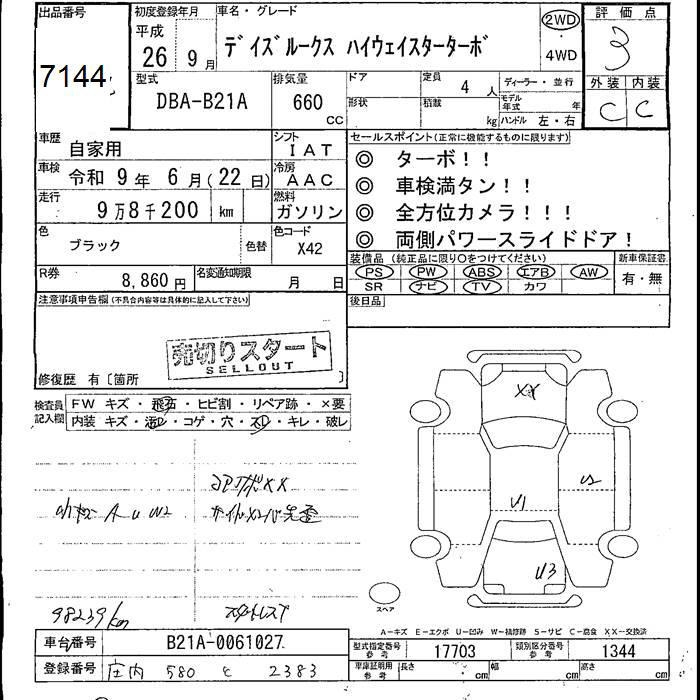 出品番号 初度登録年月 車名・グレード
7144
平成
26 9月
デイズルークス ハイウェイスターターボ
2WD
・
4WD
評価点
3
外装 内装
C C
型式 排気量 ドア 定員 4人 ディーラー・並行
DBA-B21A 660 CC
形状 積載 kg モデル年式 年
ハンドル 左・右
車歴 自家用 シフト IAT
車検 令和 9年 6月(22日) 冷房 AAC
走行 9万8千200 km 燃料 ガソリン
色 ブラック 色替 色コード X42
R券 8,860円 名変通知期限 月 日
セールスポイント(正常に機能するものに限ります)
◎ ターボ!!
◎ 車検満タン!!
◎ 全方位カメラ!!!
◎ 両側パワースライドドア!
装備品(純正品に限り○をつけてください) 新車保証書
PS PW ABS エアB AW 有・無
SR ナビ TV カワ
後日品
注意事項申告欄(不具合内容等は具体的に記入して下さい)
売切りスタート
SELLOUT
修復歴 有〔箇所 〕
検査員記入欄 FW キズ・飛石・ヒビ割・リペア跡・×要
内装 キズ・汚D・コゲ・穴・スD・キレ・破レ
XX
U2
U1
U3
スペア
小キズ A U W2
98239km
A-キズ E-エクボ U-凹み W-補修跡 S-サビ C-腐食 XX-交換済
車台番号 B21A-0061027
登録番号 庄内 580 と 2383
型式指定番号参考 17703 類別区分番号参考 1344
車庫証明用参考 長さ cm 幅 cm 高さ cm